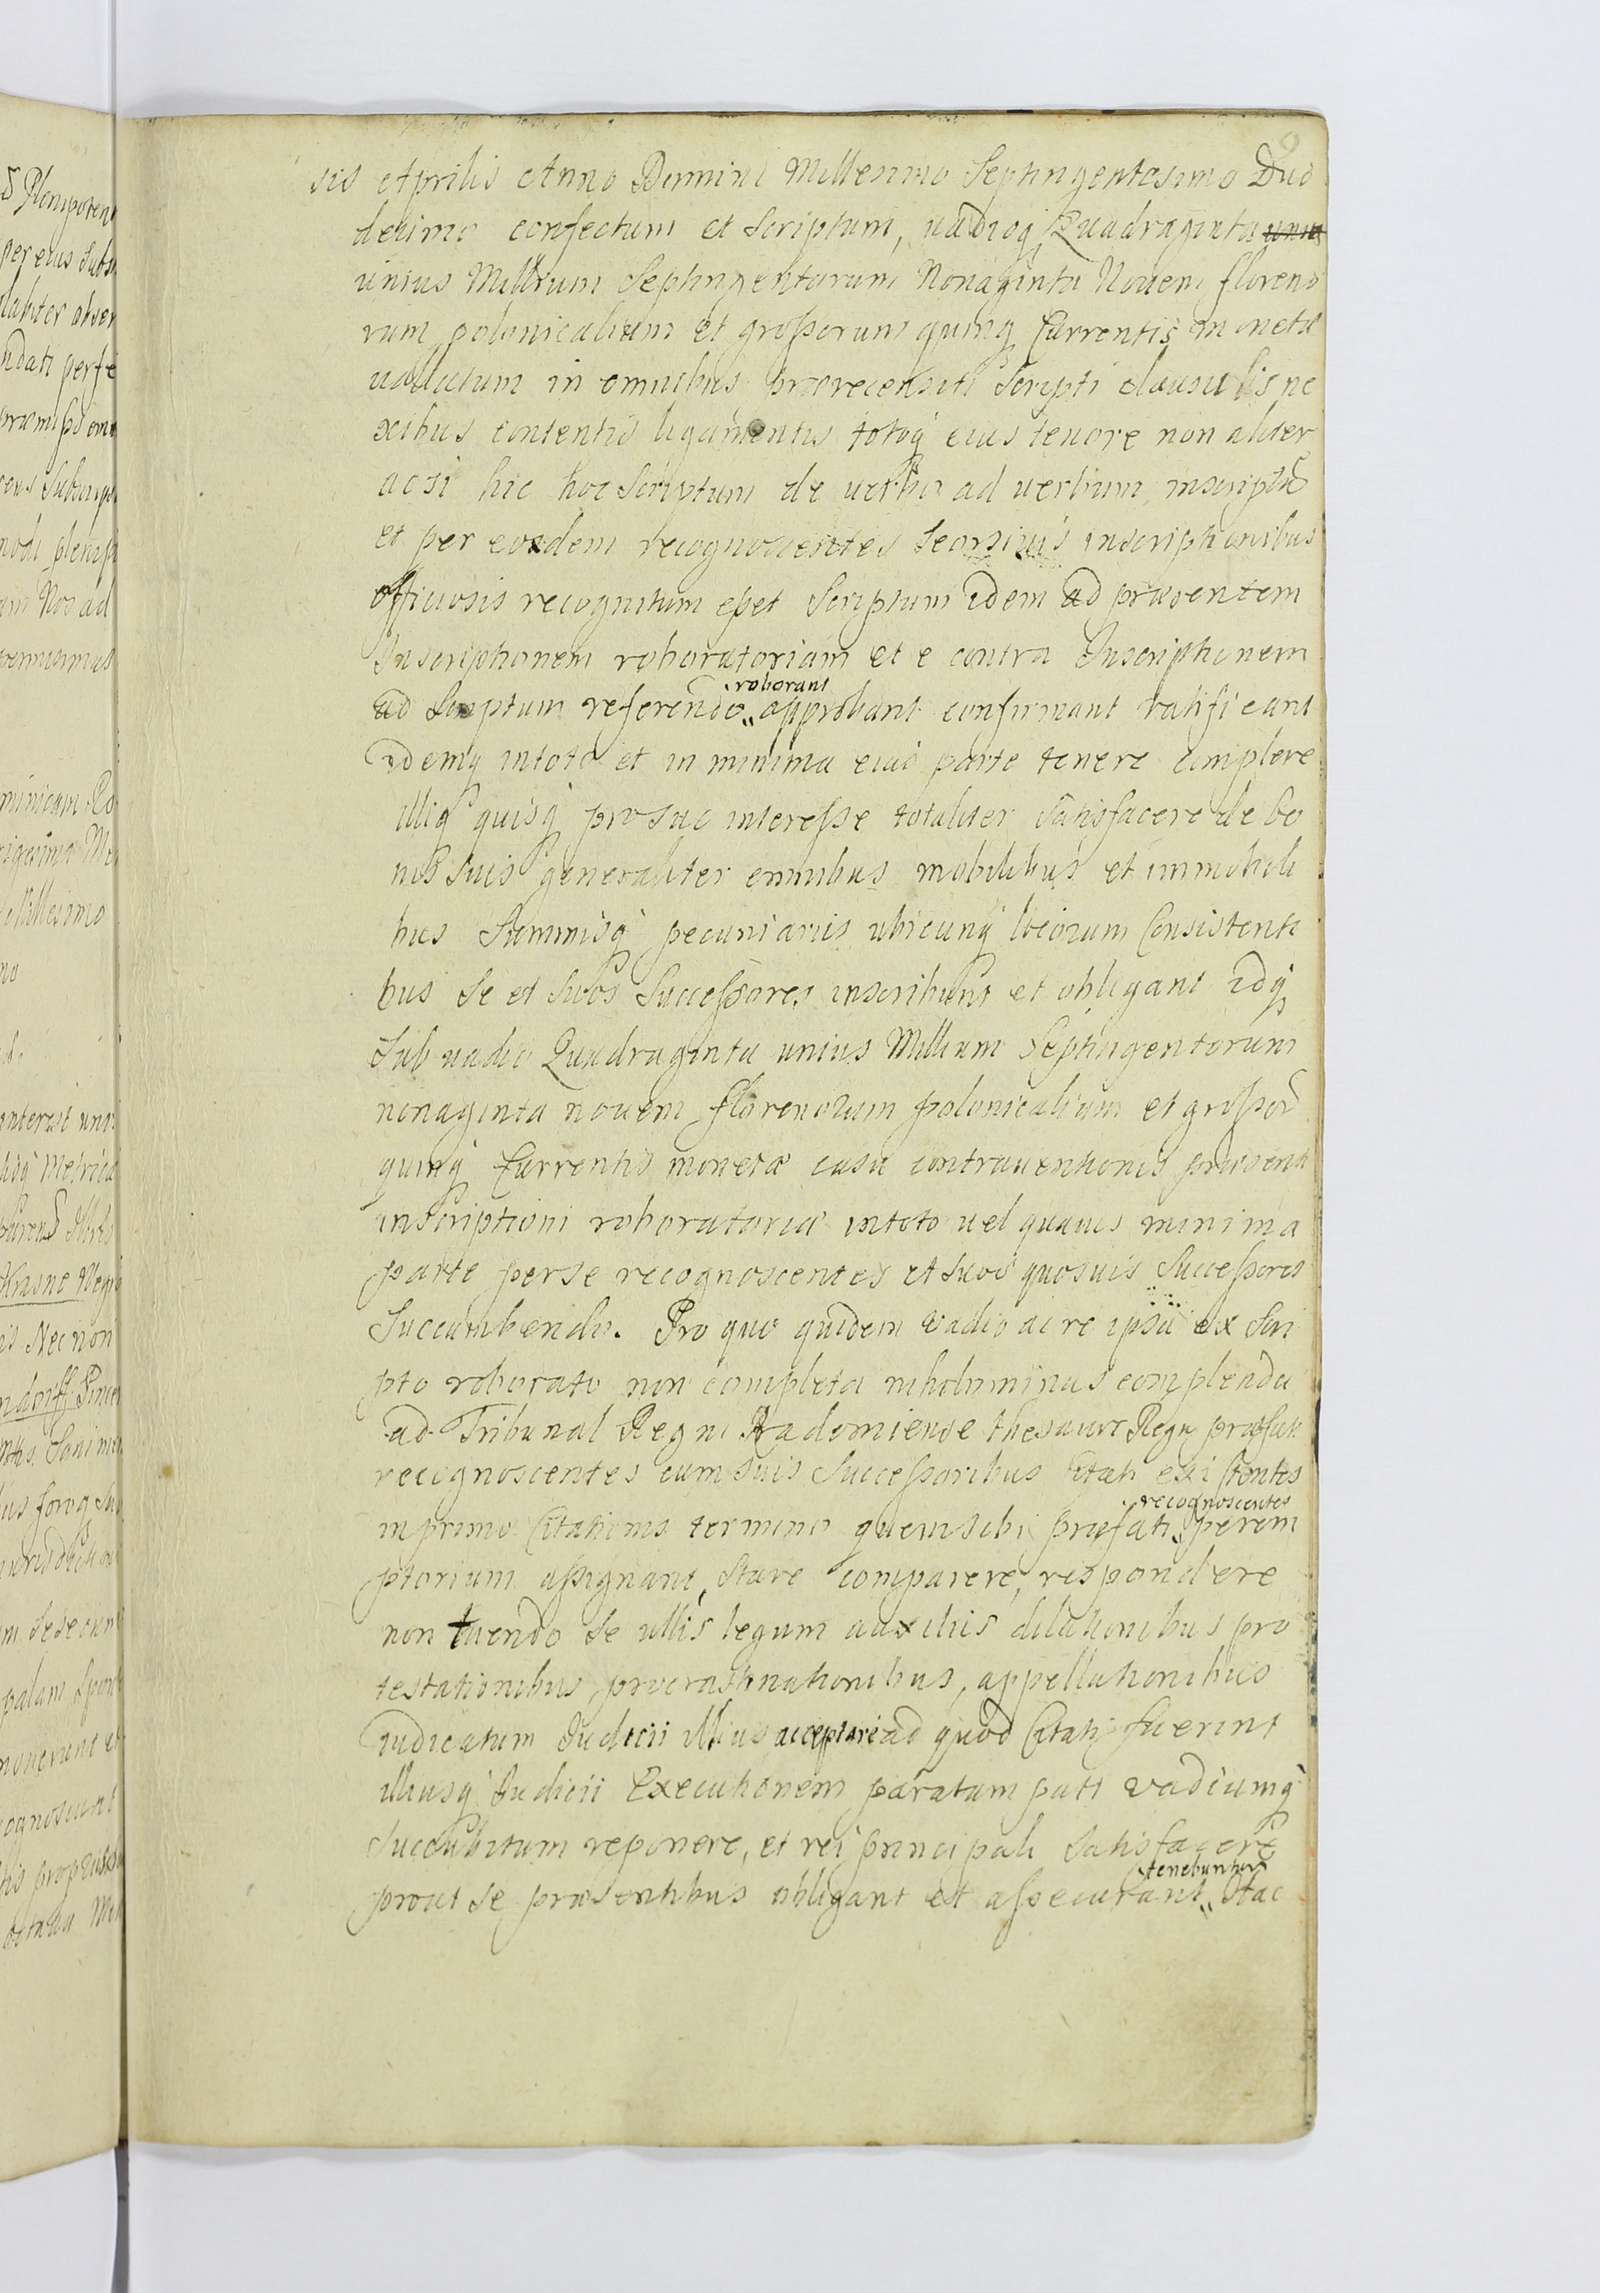 9
sis Aprilis Anno Domini Millesimo Septingentesimo Duo
decimo confectum et scriptum, vadioq Quadraginta unia
unius Millium Septingentorum Nonaginta Novem floreno
rum polonicalium et grossorum quinq Currentis moneta
vallatum in omnibus prærecensiti Scripti clausulis ne
xibus contentis ligamentis totoq eius tenore non aliter
acsi hic hoc Scriptum de verbo ad verbum inscriptũ
et per eosdem recognoscentes seorsivis inscriptionibus
officiosis recognitum esset Scriptum idem ad præsentem
Inscriptionem roboratoriam et e contra Inscriptionem
roborant
ad Scriptum referendo approbant confirmant ratificant
idemq intoto et in minima eius parte tenere implere
illiq quisq pro suo interesse totaliter satisfacere de bo
nis suis generaliter omnibus mobilibus et immobili
bus Summisq pecuniariis ubicunq locorum Consistenti
bus se et suos Successores inscribunt et obligant idq
Sub vadio Quadraginta unius Millium Septingentorum
nonaginta novem florenorum polonicalium et grossorũ
quinq Currentis monetæ casu contraventionis præsenti
inscriptioni roboratoriæ intoto vel quavis minima
parte per se recognoscentes et suos quosvis Successores
Succumbendo. Pro quo quidem vadio ac re ipsa ex Scri
pto roborato non completa niholominus complenda
ad Tribunal Regni Radomiense thesauri Regni præfati
recognoscentes cum suis Successoribus Citati existentes
recognoscentes
in primo Citationis termino quem sibi præfati perem
ptorium assignant, stare comparere, respondere
non tuendo se ullis legum auxiliis dilationibus pro
testationibus, procrastinationibus, appellationibus
iudicatum Iudicii illius acceptare ad quod Citati fuerint
illiusq Iudicii Executionem paratam pati vadiumq
succubitum reponere, et rei principali satisfacere
tenebuntur
prout se præsentibus obligant et assecurant Hac